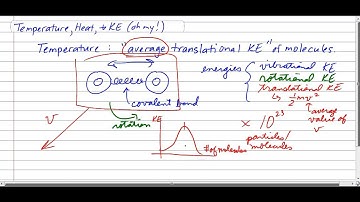 Temperature, Heat, → KE (oh my!)
Temperature : "average translational KE" of molecules.
energies
vibrational KE
rotational KE
translational KE
↳ ½mv²
average value of v
covalent bond
rotation
v
KE
# of molecules
× 10²³
particles/
molecules